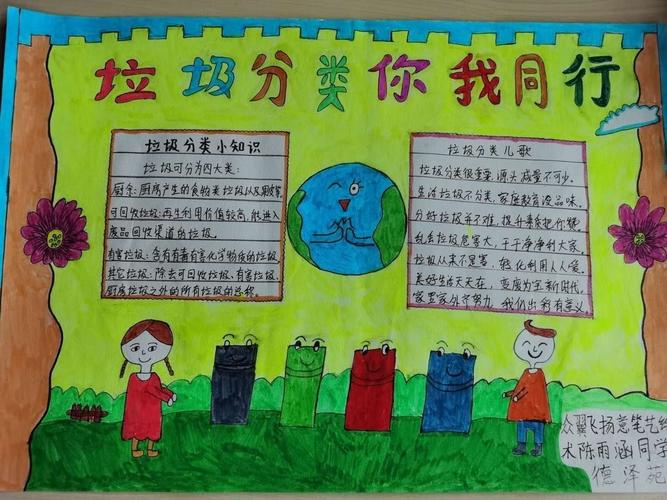 垃圾分类你我同行
垃圾分类小知识
垃圾可分为四大类:
厨余:厨房产生的食物类垃圾以及果皮等
可回收垃圾:再生利用价值较高,能进入
废品回收渠道的垃圾.
有害垃圾:含有有毒有害化学物质的垃圾
其它垃圾:除去可回收垃圾、有害垃圾、
厨房垃圾之外的所有垃圾的总称.
垃圾分类儿歌
垃圾分类很重要,源头减量不可少.
生活垃圾不分类,家庭教育没品味.
分好垃圾并不难,提升素质把你赞
乱丢垃圾危害大,干干净净利大家.
垃圾从来不是害,转化利用人人爱.
美好生活天天在,变废为宝新时代.
家里家外齐努力,我们出彩有意义.
众翼飞扬意笔艺绘
术陈雨涵同学
德泽苑